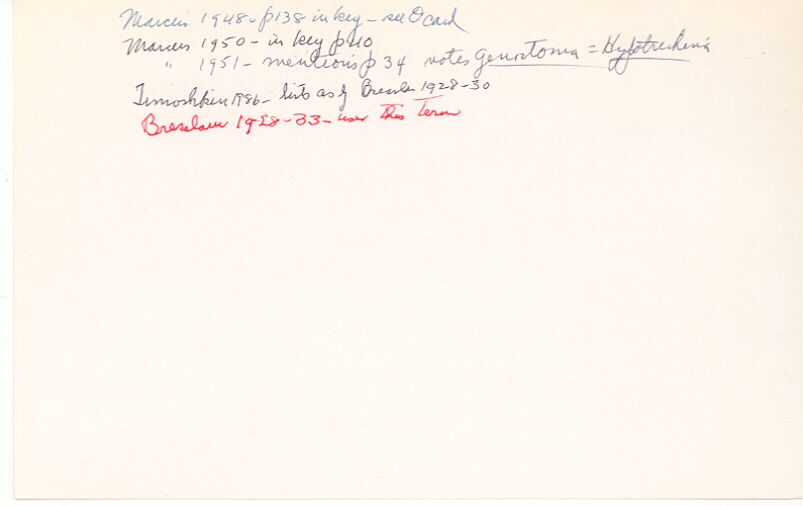 Marcus 1948 - p138 in key - see O card
Marcus 1950 - in key p 40
" 1951 - mentions p 34 notes Genostoma = Hypotrichina
Timoshkin 1986 - lists as of Bresslau 1928-30
Bresslau 1928-33 - uses this term